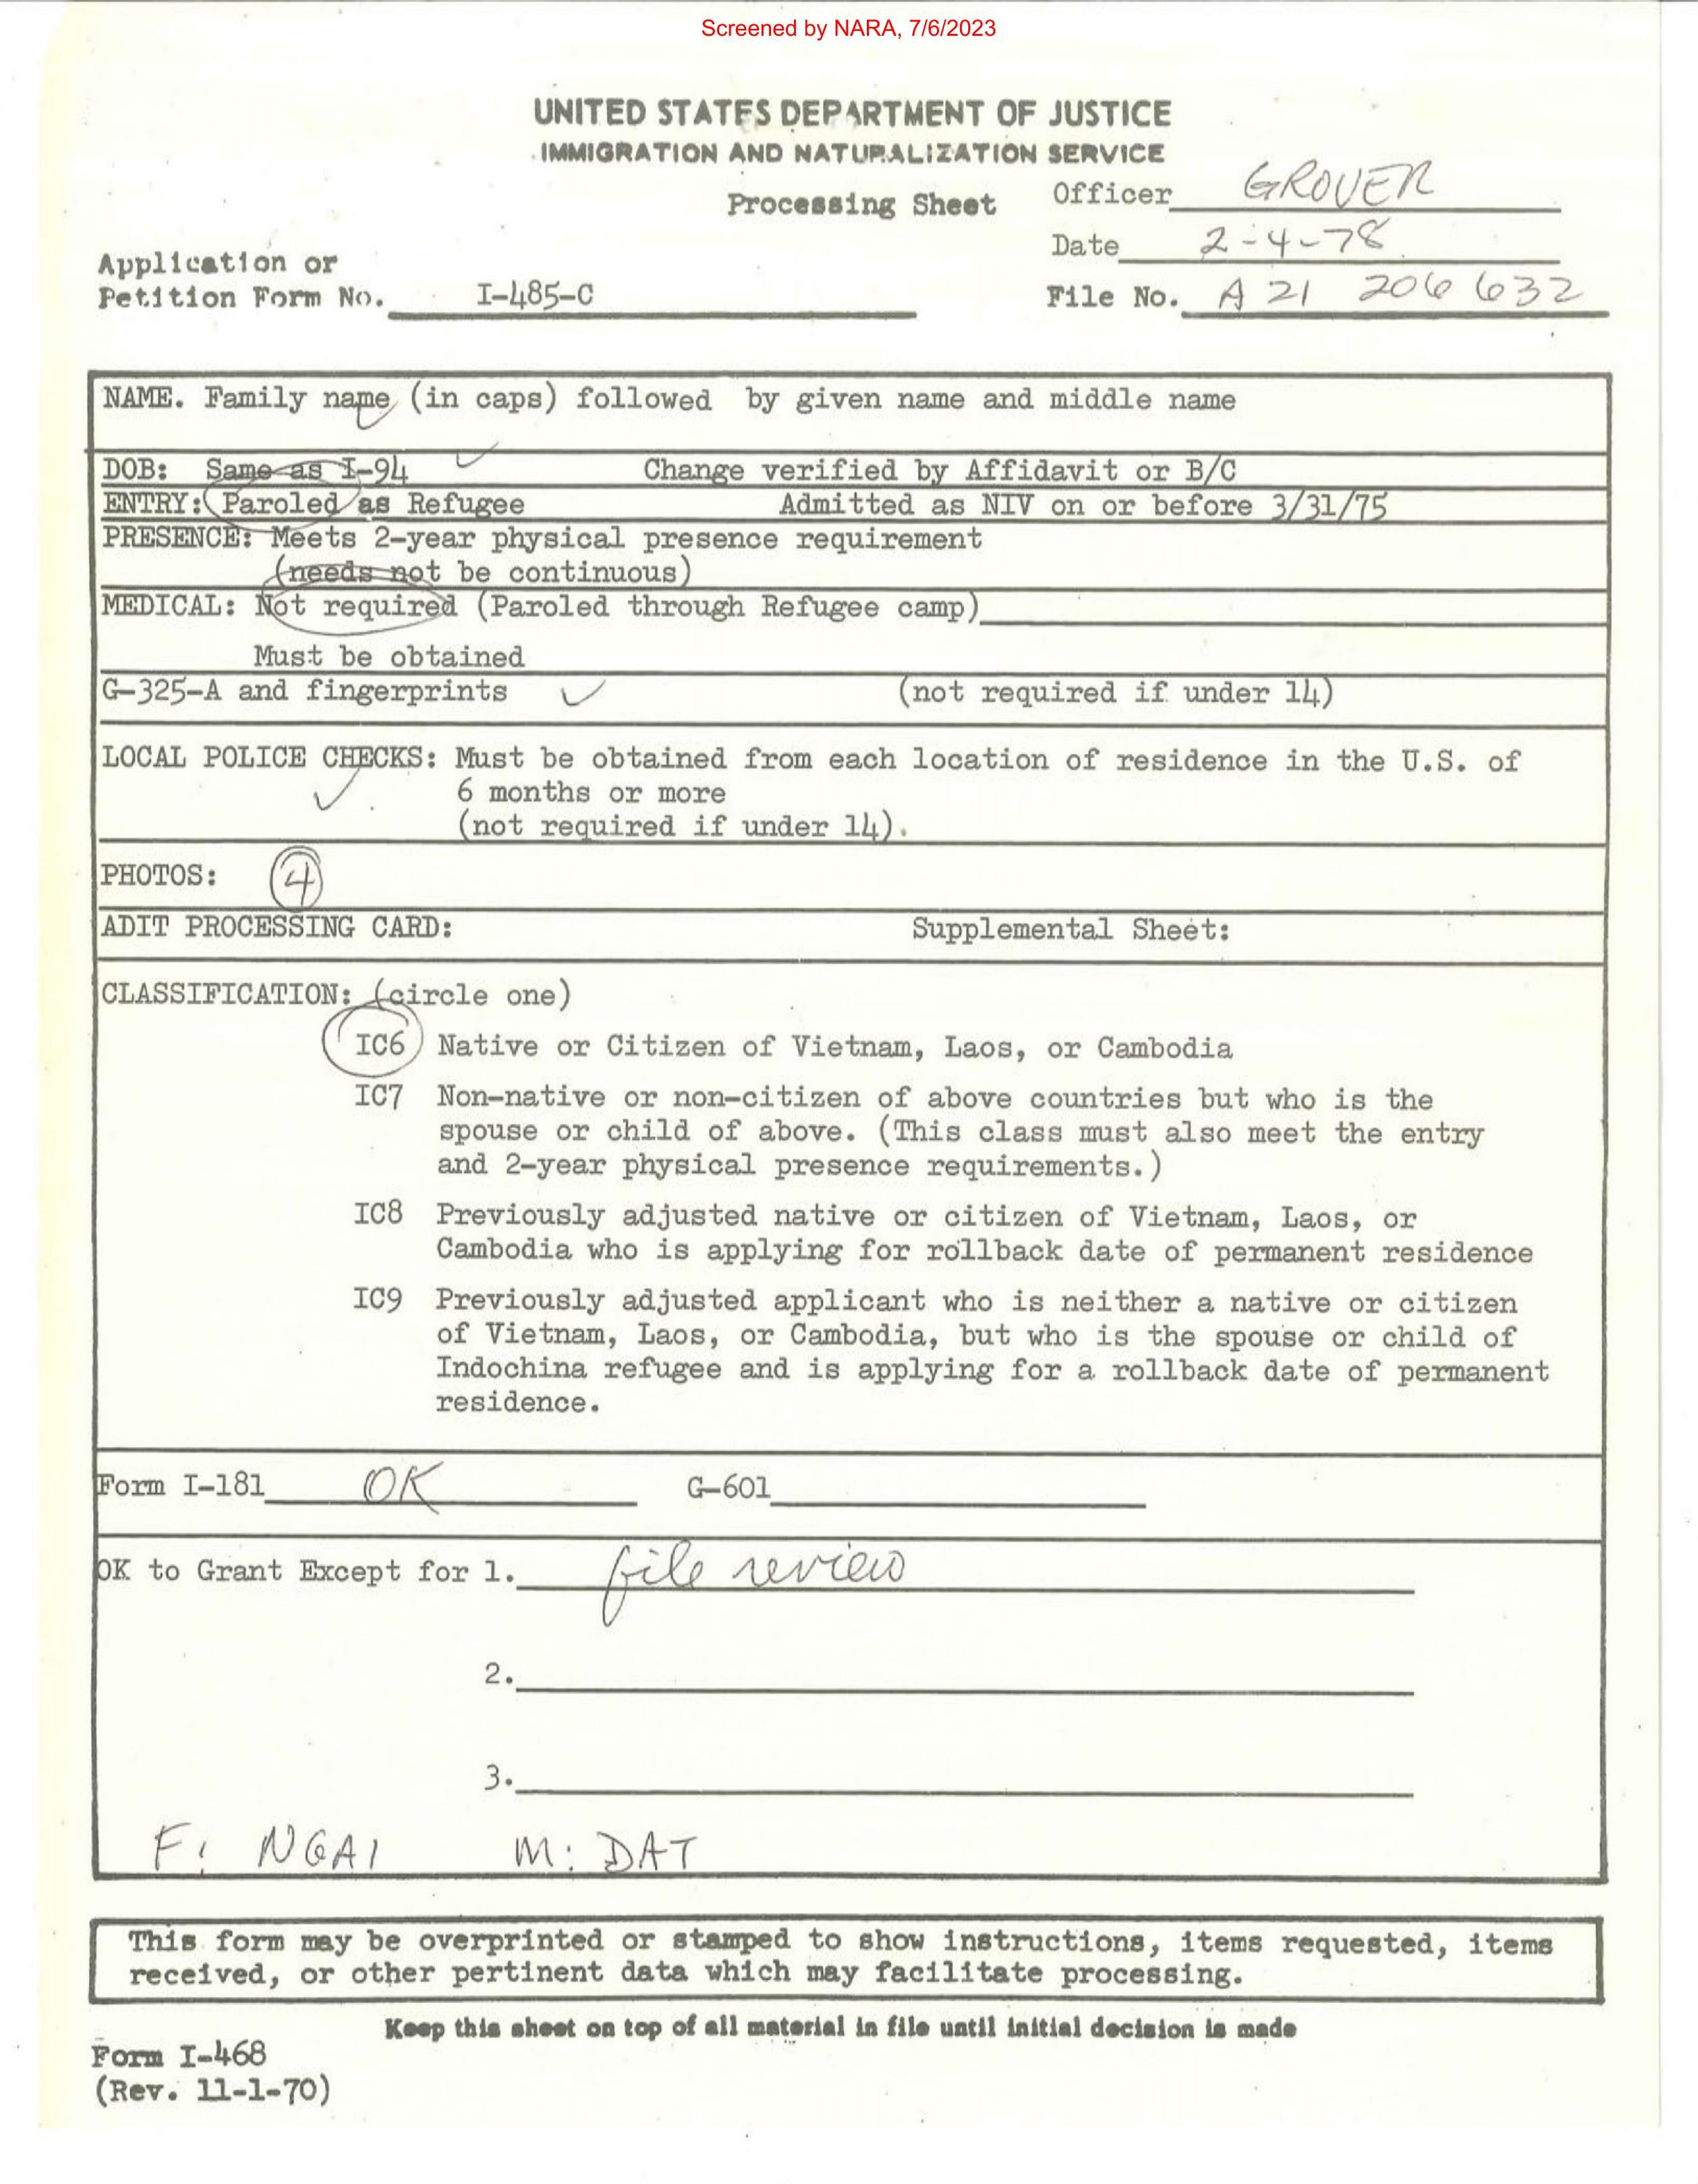 Screened by NARA, 7/6/2023
UNITED STATES DEPARTMENT OF JUSTICE
IMMIGRATION AND NATURALIZATION SERVICE
Processing Sheet
Officer GROVER
Date 2-4-78
Application or
Petition Form No. I-485-C
File No. A 21 206 632
NAME. Family name (in caps) followed by given name and middle name
DOB: Same as I-94 Change verified by Affidavit or B/C
ENTRY: Paroled as Refugee Admitted as NIV on or before 3/31/75
PRESENCE: Meets 2-year physical presence requirement
(needs not be continuous)
MEDICAL: Not required (Paroled through Refugee camp)
Must be obtained
G-325-A and fingerprints ✓ (not required if under 14)
LOCAL POLICE CHECKS: Must be obtained from each location of residence in the U.S. of
6 months or more
(not required if under 14).
PHOTOS: 4
ADIT PROCESSING CARD: Supplemental Sheet:
CLASSIFICATION: (circle one)
IC6 Native or Citizen of Vietnam, Laos, or Cambodia
IC7 Non-native or non-citizen of above countries but who is the
spouse or child of above. (This class must also meet the entry
and 2-year physical presence requirements.)
IC8 Previously adjusted native or citizen of Vietnam, Laos, or
Cambodia who is applying for rollback date of permanent residence
IC9 Previously adjusted applicant who is neither a native or citizen
of Vietnam, Laos, or Cambodia, but who is the spouse or child of
Indochina refugee and is applying for a rollback date of permanent
residence.
Form I-181 OK G-601
OK to Grant Except for 1. file review
2.
3.
F: NGAI M: DAT
This form may be overprinted or stamped to show instructions, items requested, items
received, or other pertinent data which may facilitate processing.
Keep this sheet on top of all material in file until initial decision is made
Form I-468
(Rev. 11-1-70)